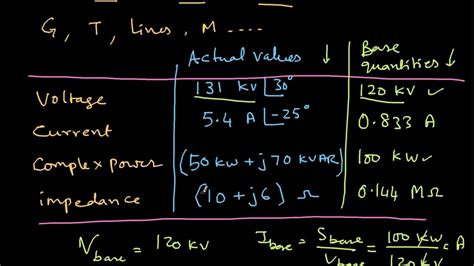 G, T, Lines, M ....
Actual values ↓ Base quantities ↓
Voltage 131 kV ∠30° 120 kV ✓
Current 5.4 A ∠-25° 0.833 A
Complex power (50 kW + j 70 kVAR) 100 kW ✓
impedance (10 + j6) Ω 0.144 MΩ
V base = 120 kV I base = S base / V base = 100 kW / 120 kV = A